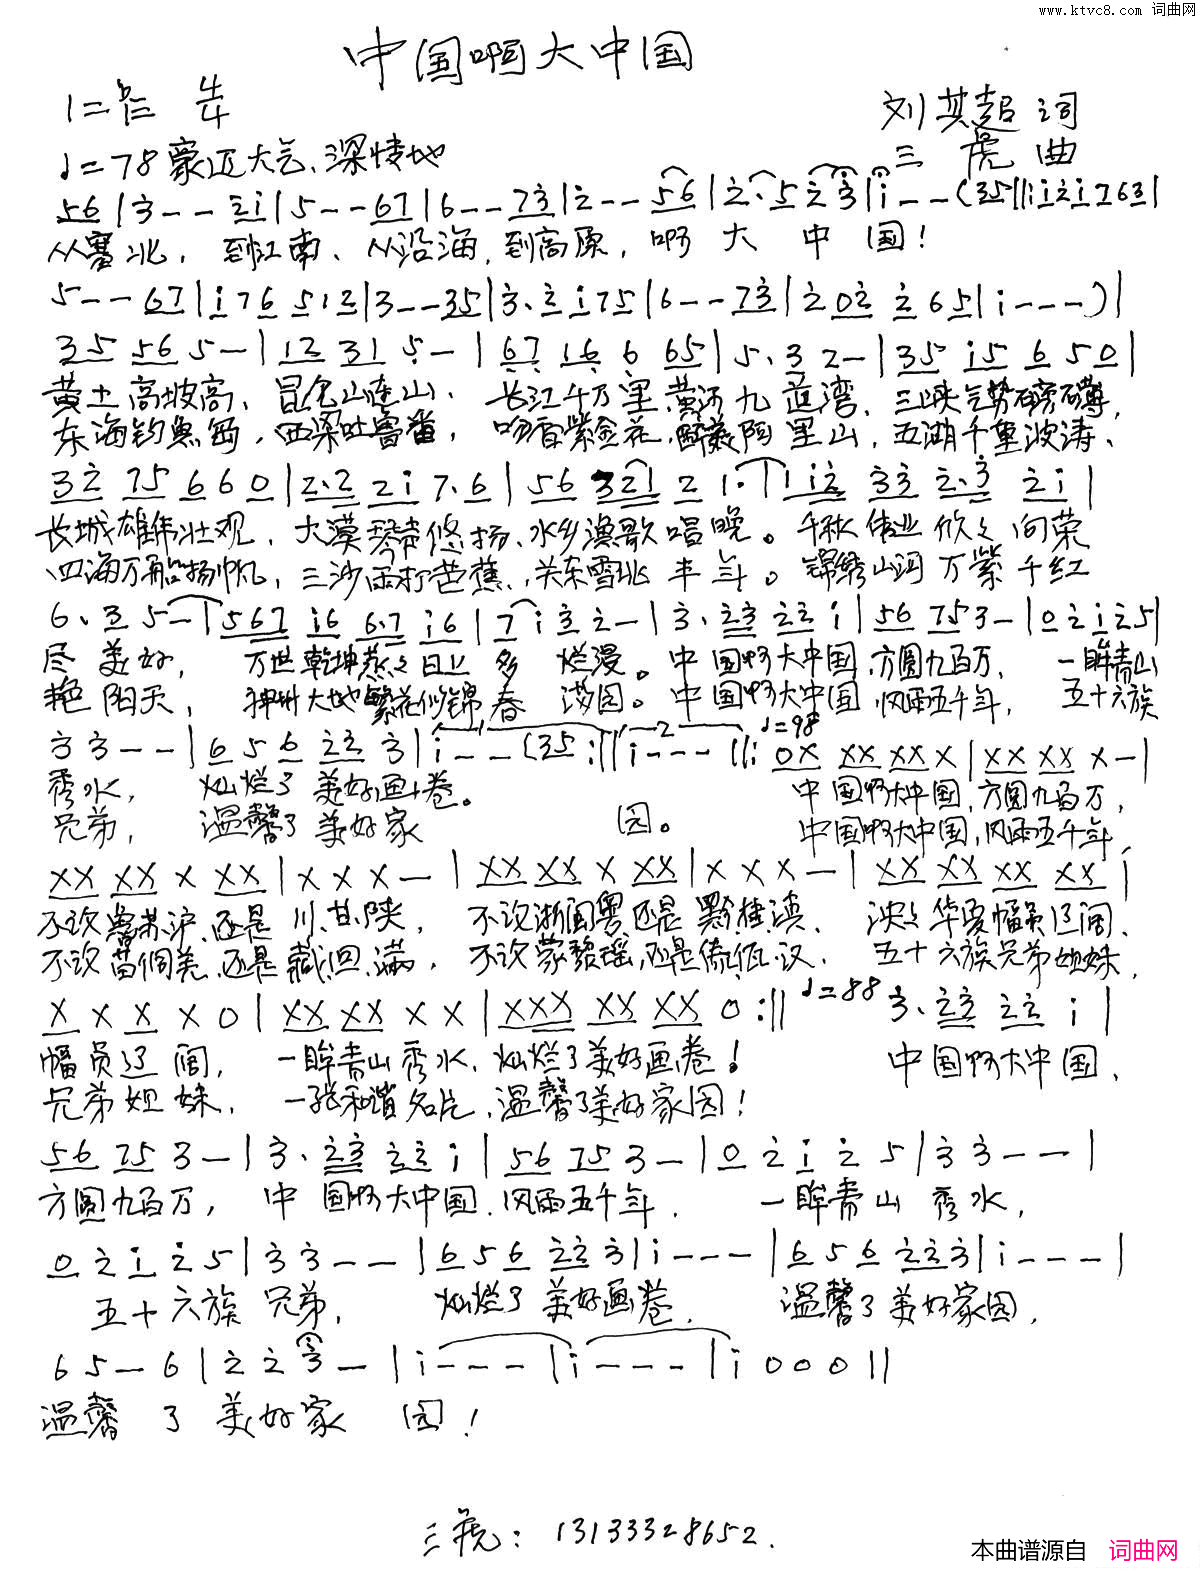 www.ktvc8.com 词曲网
中国啊大中国
刘其超 词
三虎 曲
♩=78 豪迈大气、深情地
56|3--2i|5--67|6--73|2--56|2·523|i--(35||i2i763|
从塞北，到江南、从沿海，到高原，啊大中国！
5--67|i765i2|3--35|3·2i75|6--73|202265|i---)|
35 56 5-|12 31 5-|67 16 6 65|5·3 2-|35 i5 6 50|
黄土高坡高、昆仑山连山、长江千万里，黄河九道湾、三峡气势磅礴，
东海钓鱼岛，西梁吐鲁番，吻香紫金花，醉美阿里山，五湖千重波涛、
32 75 6 6 0|2·2 2i 7·6|56 321 2 1·7|i2 33 2·3 2i|
长城雄伟壮观，大漠琴带悠扬、水乡渔歌唱晚。千秋伟业欣欣向荣
四海万船扬帆，三沙雨打芭蕉，关东雪兆丰年。锦绣山河万紫千红
6·3 5-|567 i6 6·7 i6|7 i 3 2-|3·23 22 i|56 75 3-|0 2 i 25|
尽美好，万世乾坤蒸蒸日上多烂漫。中国啊大中国，方圆九百万，一眸青山
艳阳天，神州大地繁花似锦春满园。中国啊大中国，风雨五千年，五十六族
3 3--|6 5 6 22 3|i--(35:||i---||: ♩=98 0X XX XX X|XX XX X-|
秀水，灿烂了美好画卷。中国啊大中国，方圆九百万，
兄弟，温馨了美好家园。中国啊大中国，风雨五千年，
XX XX X XX|X X X-|XX XX X XX|X X X-|XX XX XX XX|
不议鲁苏沪、还是川、甘、陕，不议浙闽粤还是黔桂滇、泱泱华夏幅员辽阔、
不议苗侗羌，还是藏、回、满，不议蒙黎瑶，还是傣、佤、汉，五十六族兄弟姐妹，
X X X X 0|XX XX X X|XXX XX XX 0:|| ♩=88 3·23 22 i|
幅员辽阔，一眸青山秀水，灿烂了美好画卷！中国啊大中国，
兄弟姐妹，一张和谐名片，温馨了美好家园！
56 75 3-|3·23 22 i|56 75 3-|0 2 i 2 5|3 3--|
方圆九百万，中国啊大中国，风雨五千年，一眸青山秀水，
0 2 i 2 5|3 3--|6 5 6 22 3|i---|6 5 6 22 3|i---|
五十六族兄弟，灿烂了美好画卷，温馨了美好家园，
6 5-6|2 2 3-|i---|i---|i 0 0 0||
温馨了美好家园！
三虎：13133328652.
本曲谱源自 词曲网